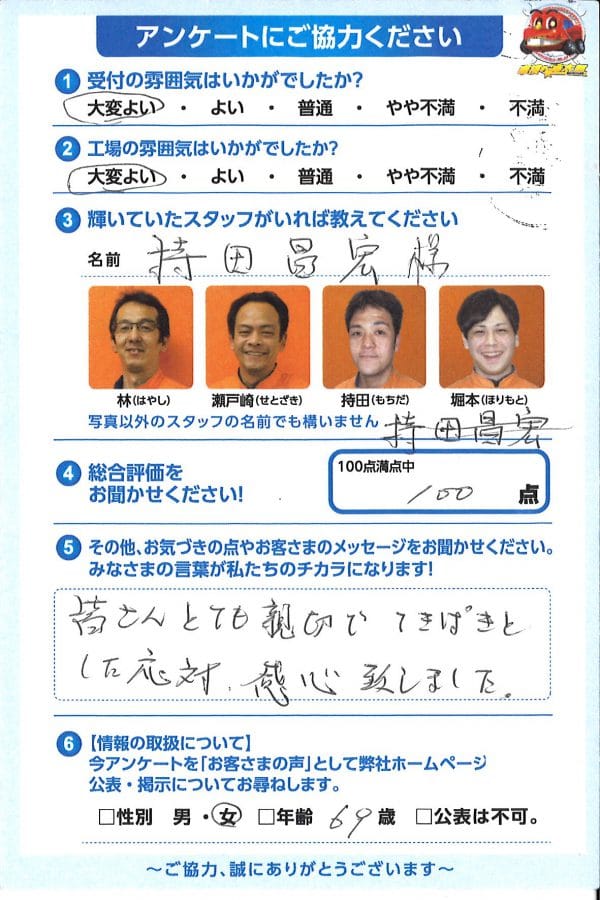 アンケートにご協力ください
1 受付の雰囲気はいかがでしたか?
大変よい ・ よい ・ 普通 ・ やや不満 ・ 不満
2 工場の雰囲気はいかがでしたか?
大変よい ・ よい ・ 普通 ・ やや不満 ・ 不満
3 輝いていたスタッフがいれば教えてください
名前 持田昌宏様
林(はやし) 瀬戸崎(せとざき) 持田(もちだ) 堀本(ほりもと)
写真以外のスタッフの名前でも構いません 持田昌宏
4 総合評価を
お聞かせください!
100点満点中
100 点
5 その他、お気づきの点やお客さまのメッセージをお聞かせください。
みなさまの言葉が私たちのチカラになります!
皆さんとても親切で てきぱきと
した応対、感心致しました。
6 【情報の取扱について】
今アンケートを「お客さまの声」として弊社ホームページ
公表・掲示についてお尋ねします。
□性別 男・女 □年齢 69歳 □公表は不可。
～ご協力、誠にありがとうございます～